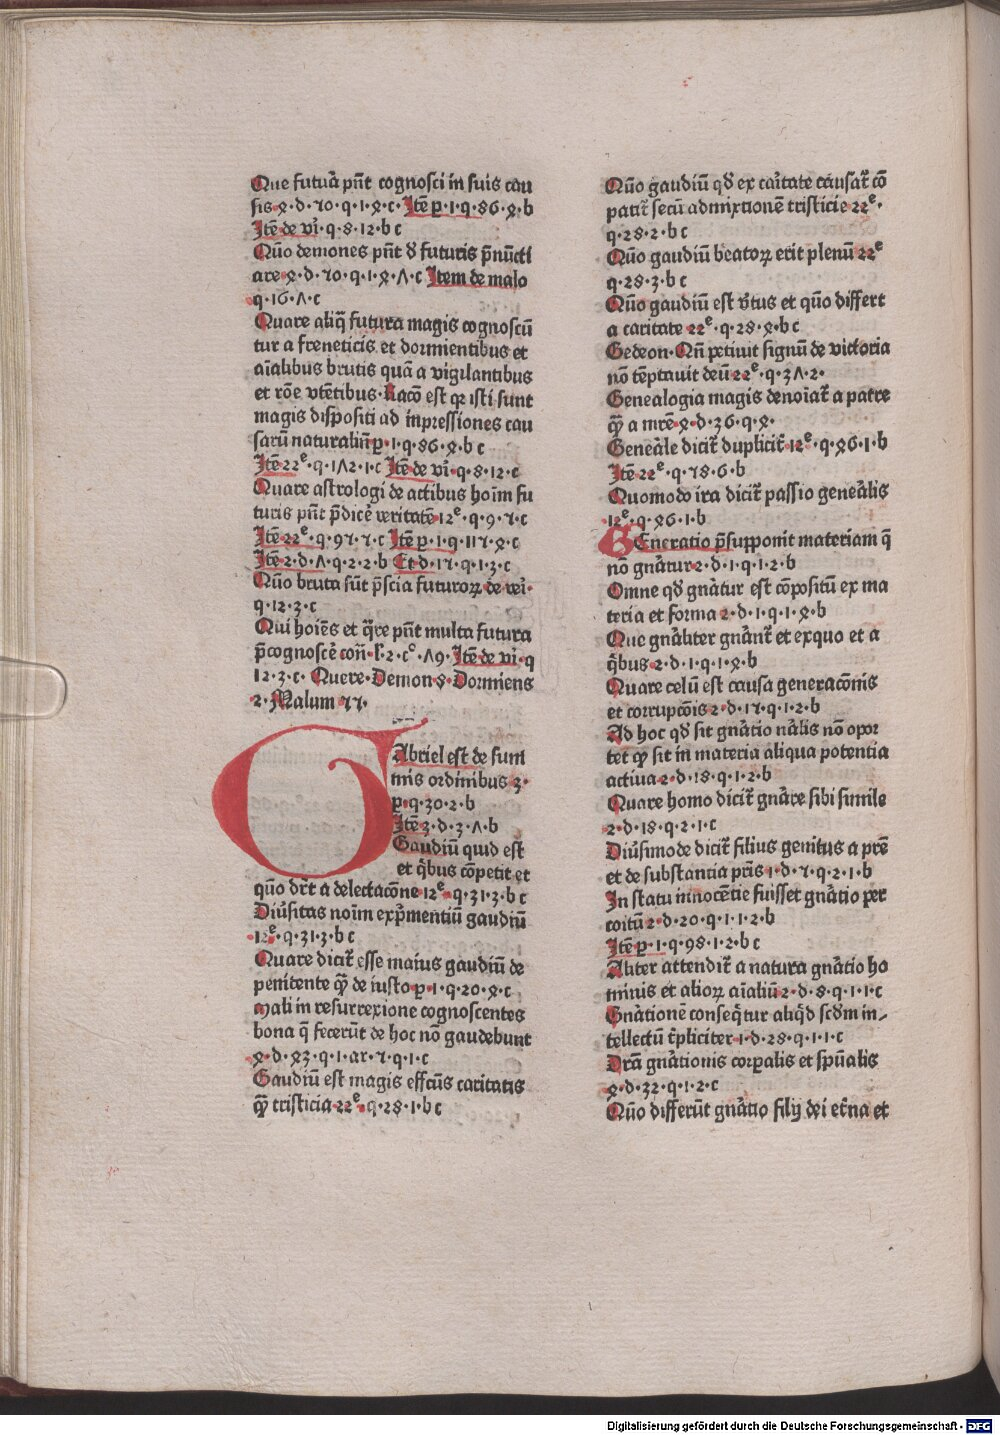 Que futura pn̄t cognosci in suis cau
sis 4·d·70·q·1·4·c· Itē p·1·q·86·4·b
Itē de vi·q·8·12·b c
Quō demones pn̄t d̄ futuris p̄nūcti
are 4·d·70·q·1·4·Λ·c Item de malo
q·16·Λ·c
Quare aliq̄ futura magis cognoscū
tur a freneticis et dormientibus et
aīalibus brutis quā a vigilantibus
et rōe vtētibus· Racō est qꝫ isti sunt
magis dispositi ad inpressiones cau
sarū naturaliū p·1·q·86·4·b c
Itē 22ͤ·q·1Λ2·1·c Itē de vi·q·8·12·c
Quare astrologi de actibus hoīm fu
turis pn̄t p̄dicē veritatē 12ͤ·q·9·7·c
Itē 22ͤ·q·97·7·c Itē p·1·q·117·4·c
Itē 2·d·Λ·q·2·2·b Et d·17·q·1·3·c
Quō bruta sūt p̄scia futuroꝝ de vei·
q·12·3·c
Qui hoīes et q̄re pn̄t multa futura
p̄cognoscē con̄·l·2·c°·Λ9· Itē de vi·q
12·3·c· Quere· Demon 8· Dormiens
2· Malum 77·
GAbriel est de sum
mis ordinibus 3·
p·q·30·2·b
Itē 3·d·3·Λ·b
Gaudiū quid est
et q̄bus cōpetit et
quō dr̄t a delectacōne 12ͤ·q·31·3·b c
Diūsitas noīm exp̄mentiū gaudiū
12ͤ·q·31·3·b c
Quare dicit᷑ esse maius gaudiū de
penitente qꝫ de iusto p·1·q·20·4·c
Mali in resurrexione cognoscentes
bona q̄ fecerūt de hoc nō gaudebunt
4·d·43·q·1·ar·7·q·1·c
Gaudiū est magis effcūs caritatis
qꝫ tristicia 22ͤ·q·28·1·b c
Quō gaudiū qd̄ ex caritate causat᷑ cō
patit᷑ secū admixtionē tristicie 22ͤ·
q·28·2·b c
Quō gaudiū beatoꝝ erit plenū 22ͤ
q·28·3·b c
Quō gaudiū est v̄tus et quō differt
a caritate 22ͤ·q·28·4·b c
Gedeon· Qn̄ petiuit signū de victoria
nō tēptauit deū 22ͤ·q·3Λ·2·
Genealogia magis denoīat᷑ a patre
qꝫ a mrē 4·d·36·q·4·
Geneāle dicit᷑ duplicit᷑ 12ͤ·q·46·1·b
Itē 22ͤ·q·78·6·b
Quomodo ira dicit᷑ passio geneālis
12ͤ·q·46·1·b
GEneratio p̄supponit materiam q̄
nō gnātur 2·d·1·q·1·2·b
Omne qd̄ gnātur est cōpositū ex ma
teria et forma 2·d·1·q·1·4·b
Que gnāliter gnānt᷑ et exquo et a
q̄bus 2·d·1·q·1·4·b
Quare celū est causa generacōnis
et corrupcōis 2·d·17·q·1·2·b
Ad hoc qd̄ sit gnātio nālis nō opor
tet qꝫ sit in materia aliqua potentia
actiua 2·d·18·q·1·2·b
Quare homo dicit᷑ gnāre sibi simile
2·d·18·q·2·1·c
Diūsimode dicit᷑ filius genitus a prē
et de substantia pr̄is 1·d·7·q·2·1·b
In statu innocētie fuisset gnātio per
coitū 2·d·20·q·1·1·2·b
Itē p·1·q·98·1·2·b c
Aliter attendit᷑ a natura gnātio ho
minis et alioꝝ aīaliū 2·d·8·q·1·1·c
Gnātionē conseq̄tur aliq̄d scd̄m in-
tellectū t̄pliciter 1·d·28·q·1·1·c
Drā gnātionis corp̄alis et spūalis
4·d·32·q·1·2·c
Quō differūt gnātio filij dei et̄na et
Digitalisierung gefördert durch die Deutsche Forschungsgemeinschaft - DFG